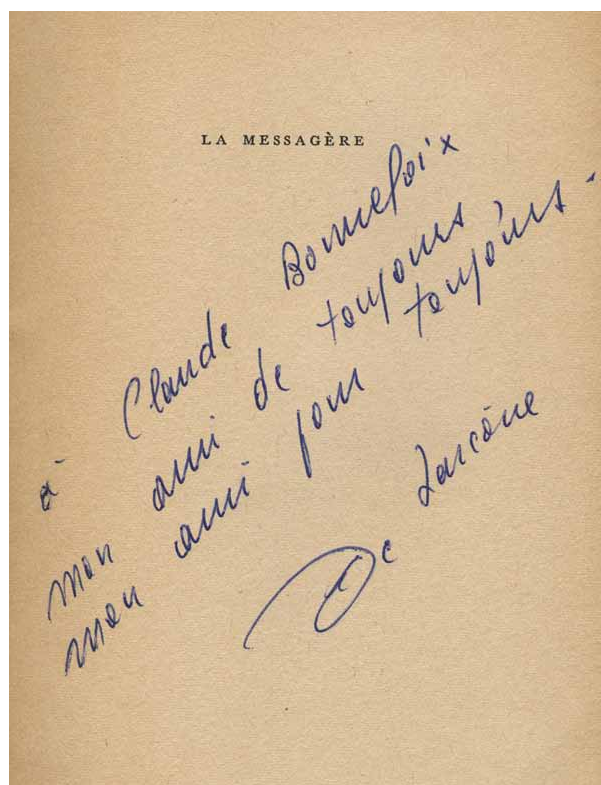 LA MESSAGÈRE
à Claude Bonnefoix
mon ami de toujours,
mon ami pour toujours.
Larcône